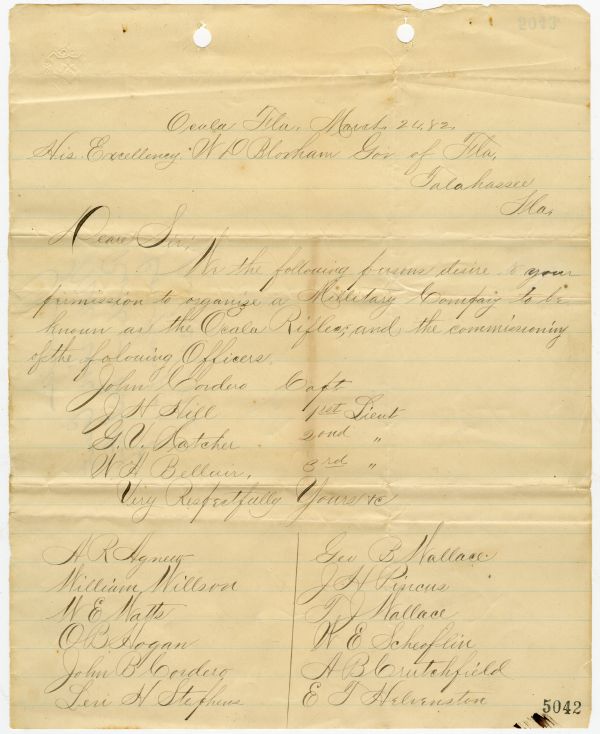 Ocala Fla. March 24. 82.
His Excellency W D Bloxham Gov of Fla,
Talahassee
Fla,
Dear Sir;
We the following persons desire to your
permission to organise a Millitary Compaiy to be
known as the Ocala Rifles; and the commisioning
of the folowing Officers.
John Cordero Capt
J H Hill 1st Lieut
G. V. 2ond "
W H Bellair, 3rd "
Viry Respectfully Yours &c
A R Agnew
William Willson
W E Watts
O B Hogan
John B Cordero
Levi H Stephens
Geo B Wallace
J H Pincus
T J Wallace
W E Scheoflin
A B Crutchfield
E T Helvenston
5042